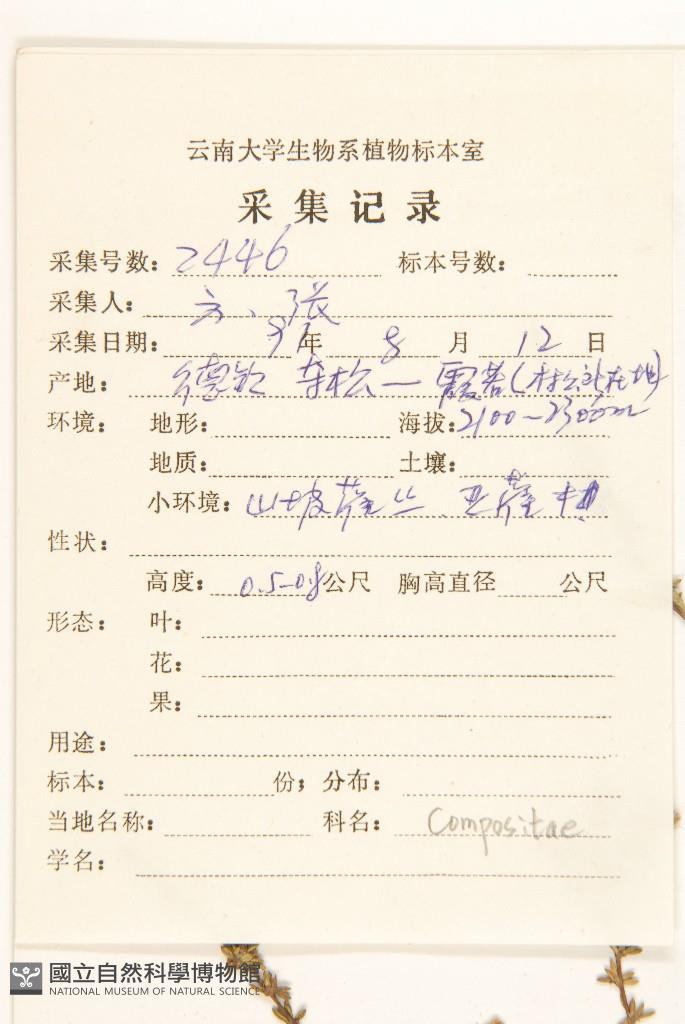 云南大学生物系植物标本室
采集记录
采集号数: 2446 标本号数:
采集人: 方、张
采集日期: 年 8 月 12 日
产地: 德钦 奔松—霞若(
环境: 地形: 海拔: 2100—2300m
地质: 土壤:
小环境: 山坡灌丛、亚灌木
性状:
高度: 0.5-0.8 公尺 胸高直径 公尺
形态: 叶:
花:
果:
用途:
标本: 份; 分布:
当地名称: 科名: Compositae
学名:
國立自然科學博物館
NATIONAL MUSEUM OF NATURAL SCIENCE